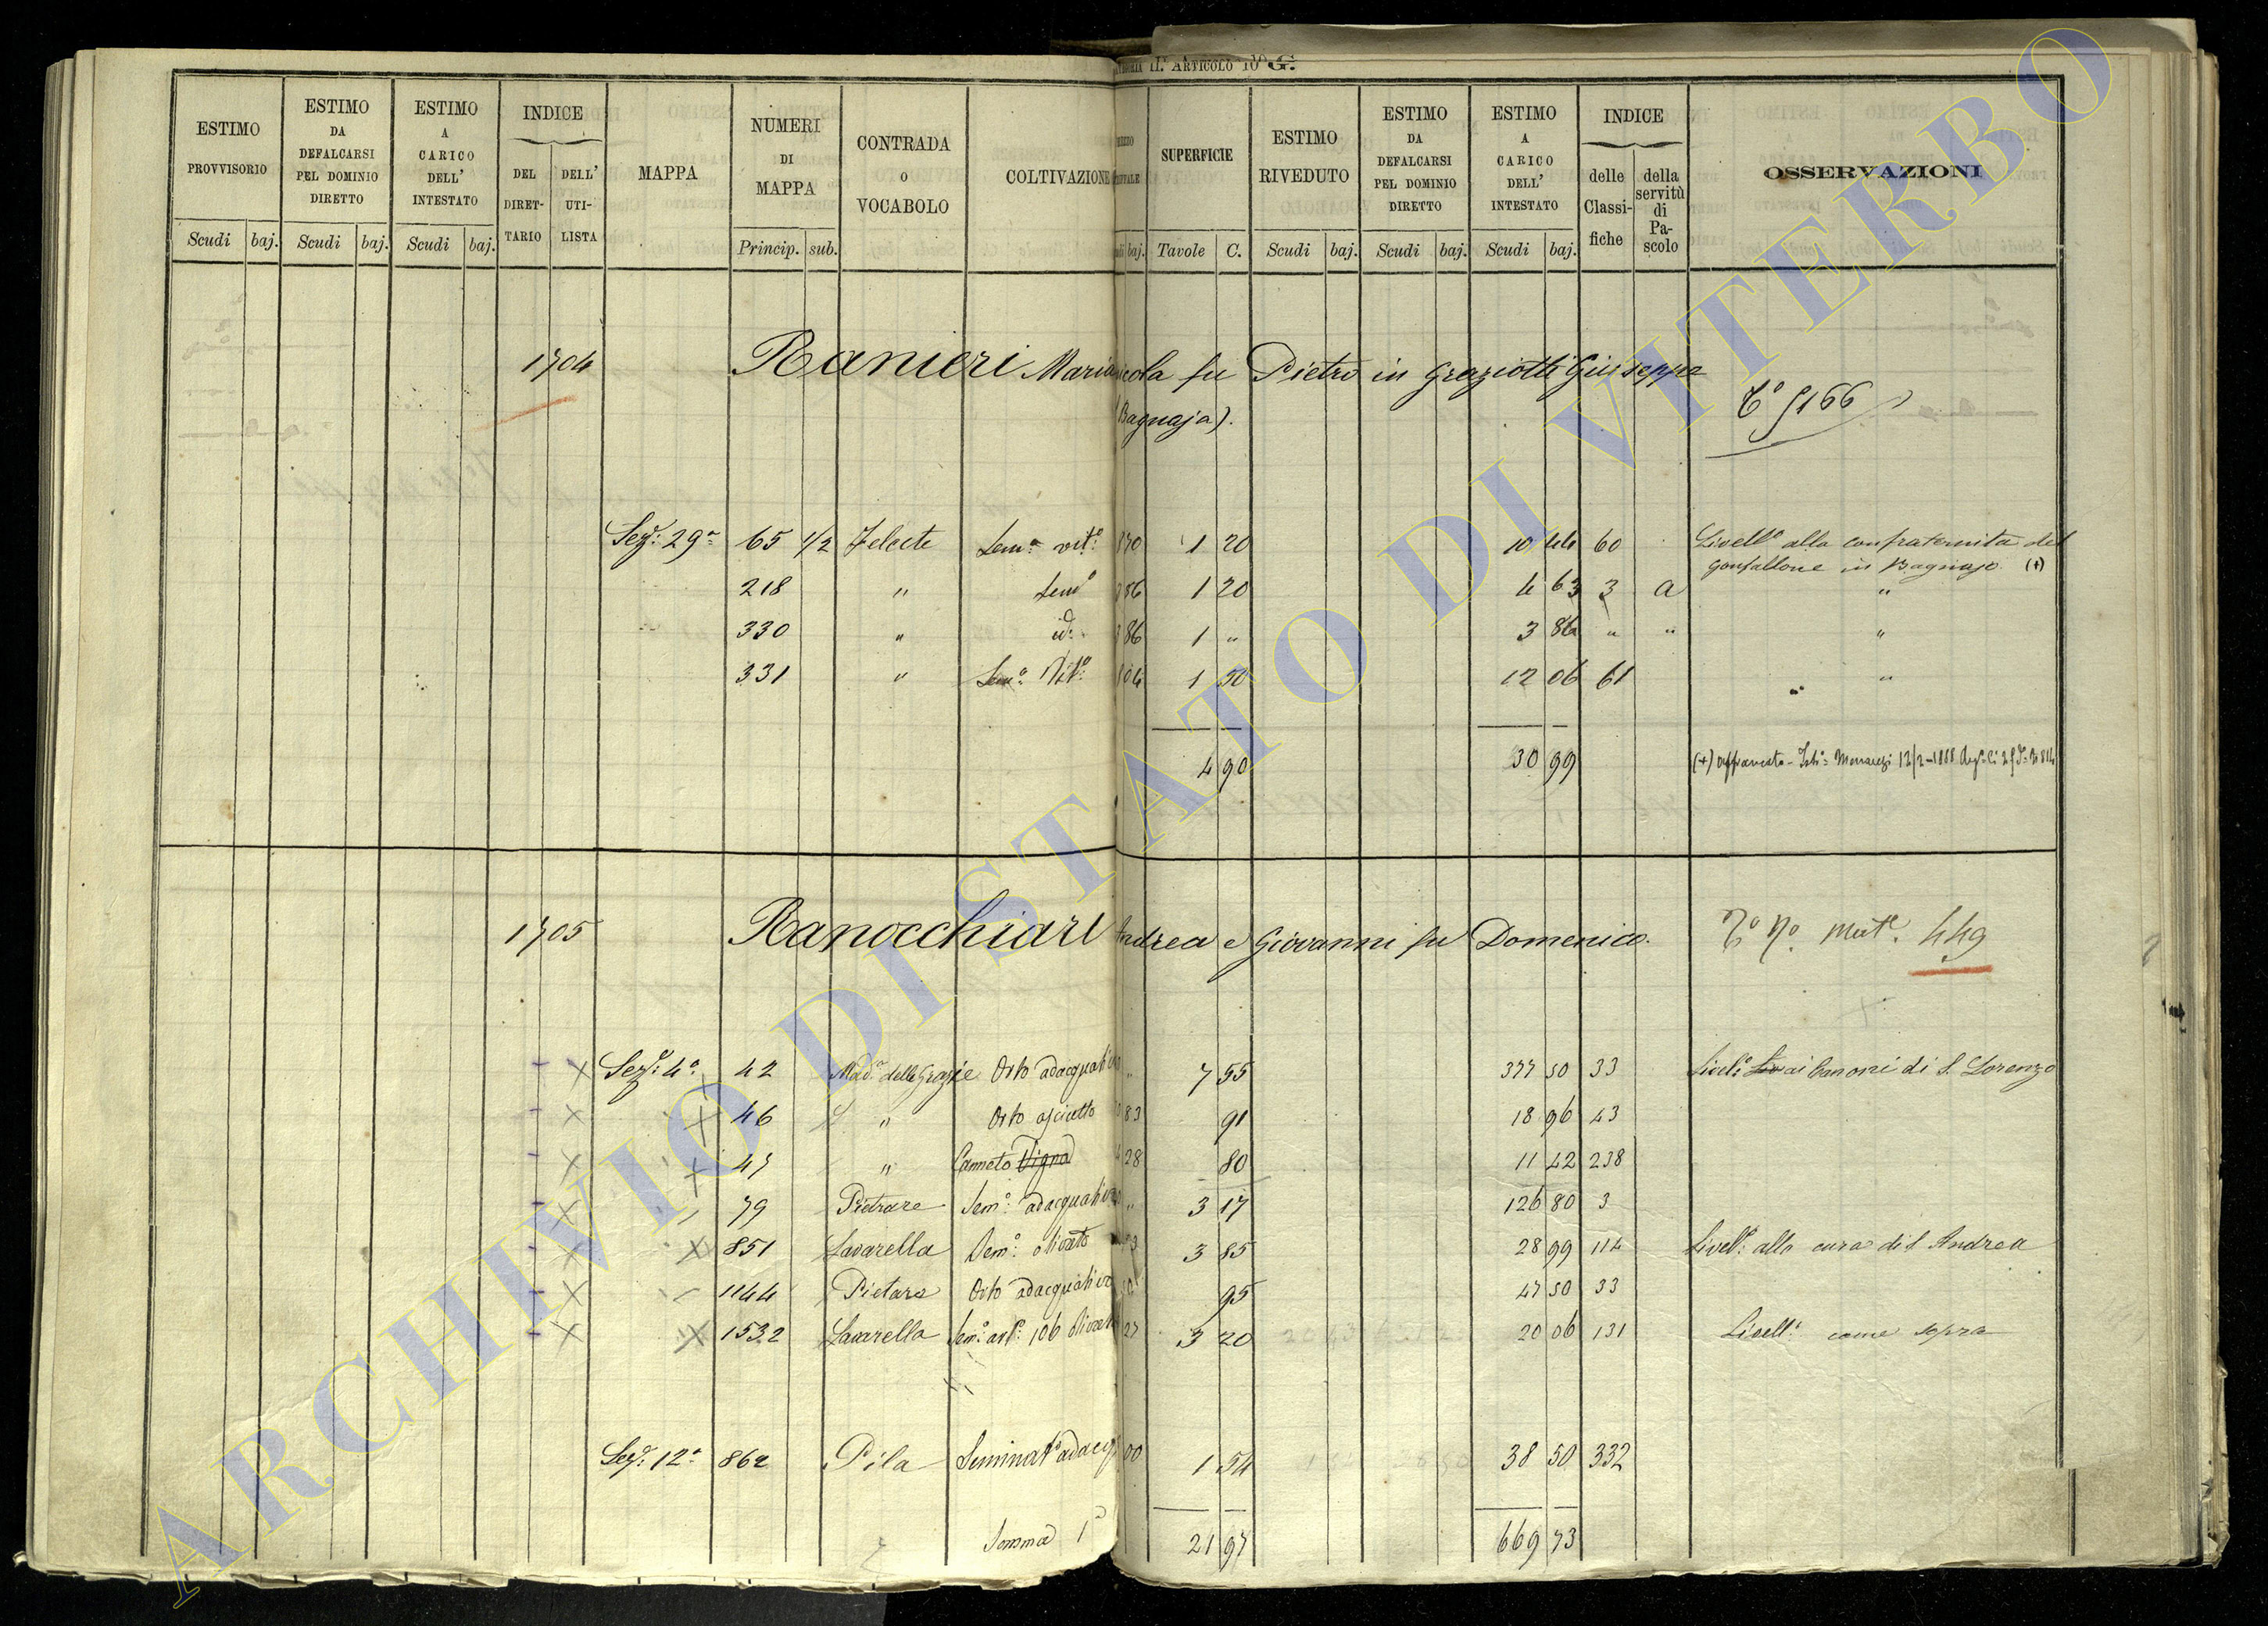 II.ª ARTICOLO 10º G.
ESTIMO PROVVISORIO
ESTIMO DA DEFALCARSI PEL DOMINIO DIRETTO
ESTIMO A CARICO DELL' INTESTATO
INDICE
DEL DIRET-TARIO
DELL' UTI-LISTA
MAPPA
NUMERI DI MAPPA
CONTRADA O VOCABOLO
COLTIVAZIONE
SUPERFICIE
ESTIMO RIVEDUTO
ESTIMO DA DEFALCARSI PEL DOMINIO DIRETTO
ESTIMO A CARICO DELL' INTESTATO
INDICE
delle Classi-fiche
della servitù di Pa-scolo
OSSERVAZIONI
Scudi baj. Scudi baj. Scudi baj. Princip. sub. baj. Tavole C. Scudi baj. Scudi baj. Scudi baj.
1704 Ranieri Marianicola fu Pietro in Graziotti Giuseppe
(Bagnaja).
Tº 5166
Sezº: 29ª 65 1/2 Felcete Semº vitº: 870 1 20 10 44 60 Livellº alla confraternita del
Gonfallone in Bagnajo. (+)
218 " Semº 86 1 20 4 63 3 a "
330 " id: 86 1 " 3 86 " " "
331 " Semº: Vitº: 804 1 50 12 06 61 " "
4 90 30 99 (+) affrancato - Istº: Menarezi 12/2-1888
1705 Ranocchiari Andrea e Giovanni fu Domenico. Tº Nº Matº. 449
Sezº: 4ª 42 Madª delle Grazie Orto adacquativo " 7 55 377 50 33 Livelº ai Canonici di S. Lorenzo
46 " Orto asciutto 83 91 18 96 43
47 " Canneto Vigna 28 80 11 42 238
79 Pietrare Semº: adacquativo " 3 17 126 80 3
851 Lavarella Semº: olivato 3 3 85 28 99 114 Livelº: alla cura di S. Andrea
1144 Pietare Orto adacquativo 50 95 47 50 33
1532 Lavarella Semº: artº: 106 olivato 27 3 20 20 06 131 Livellº: come sopra
Sezº: 12ª 862 Pila Seminatº adacqº 00 1 54 38 50 332
Somma 1ª 21 97 669 73
ARCHIVIO DI STATO DI VITERBO